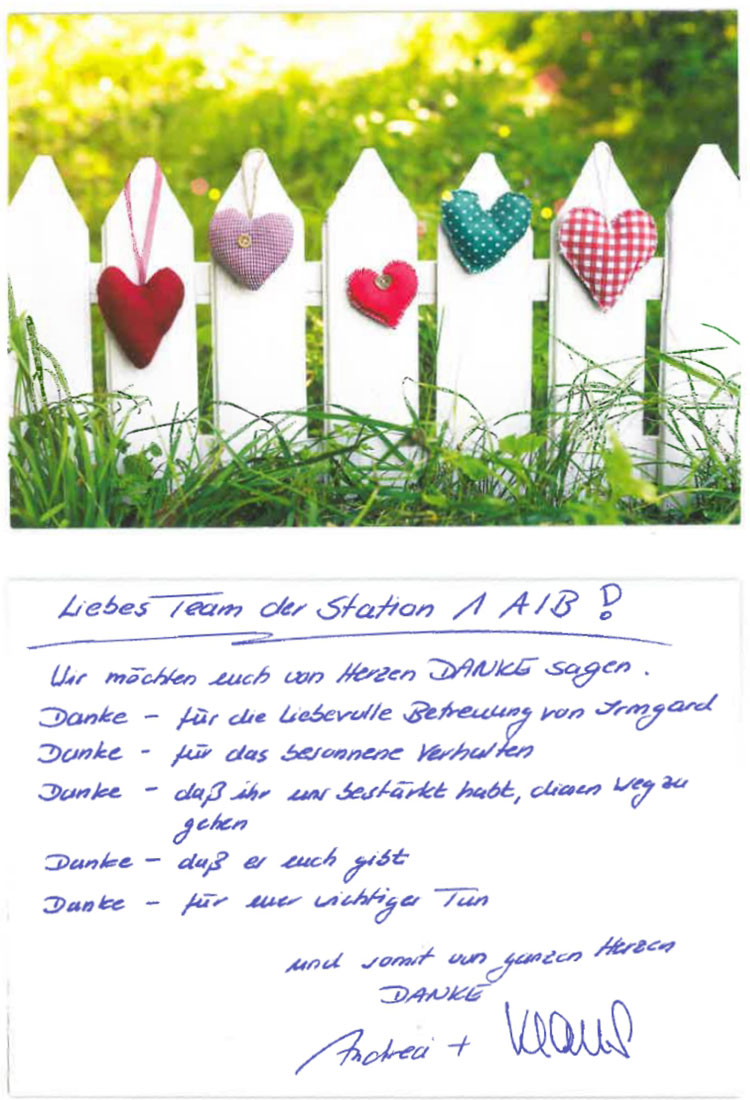 Liebes Team der Station 1 A/B !
Wir möchten euch von Herzen DANKE sagen.
Danke - für die liebevolle Betreuung von Irmgard
Danke - für das besonnene Verhalten
Danke - daß ihr uns bestärkt habt, diesen Weg zu
gehen
Danke - daß es euch gibt
Danke - für euer wichtiges Tun
und somit von ganzen Herzen
DANKE
Andrea + Klaus